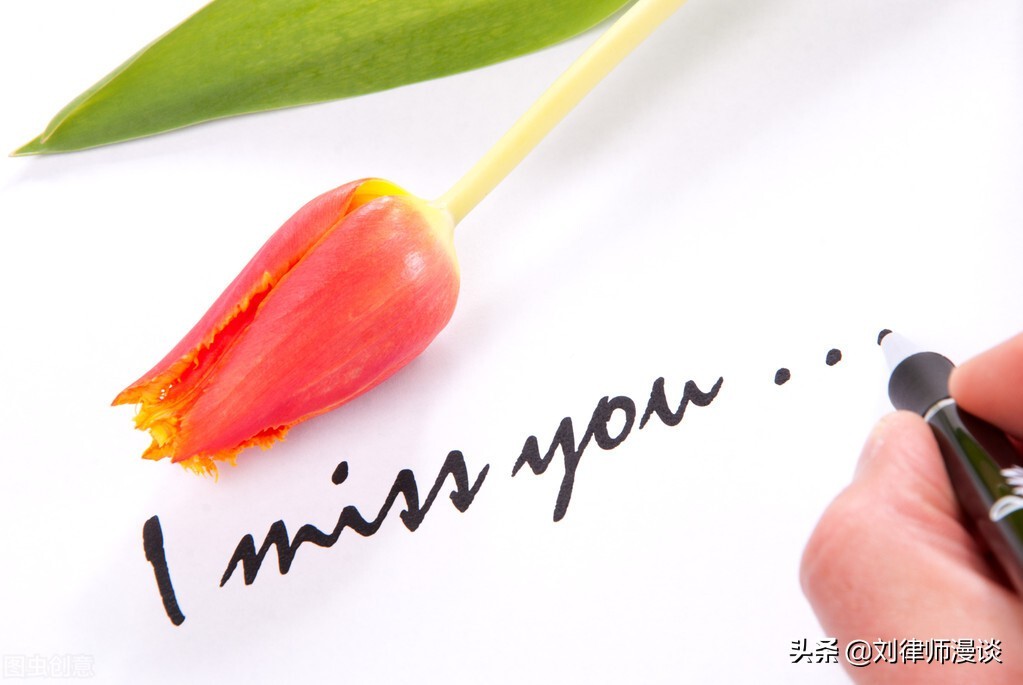 I miss you ...
图虫创意
头条 @刘律师漫谈